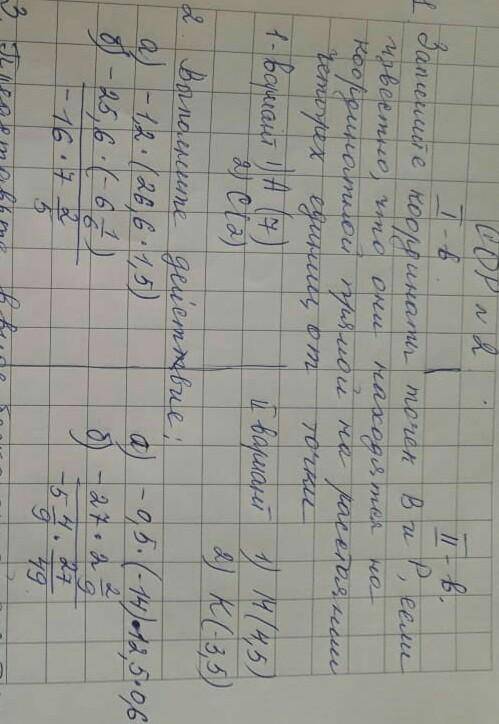 СОР №2.
I - в. II - в.
1. Запишите координаты точек В и Р, если
известно, что они находятся на
координатной прямой на расстоянии
четырех единиц от точки
1-вариант 1) А (7) II вариант 1) М(4,5)
2) С(2) 2) К(-3,5)
2. Выполните действие:
а) -1,2 · (26,6 · 1,5) а) -0,5 · (-14) · 12,5 · 0,6
б) -25,6 · (-6 1/6) б) -27 · 2 2/9
-16 · 7 2/5 -5 4/9 · 27/49
3. Представьте в виде